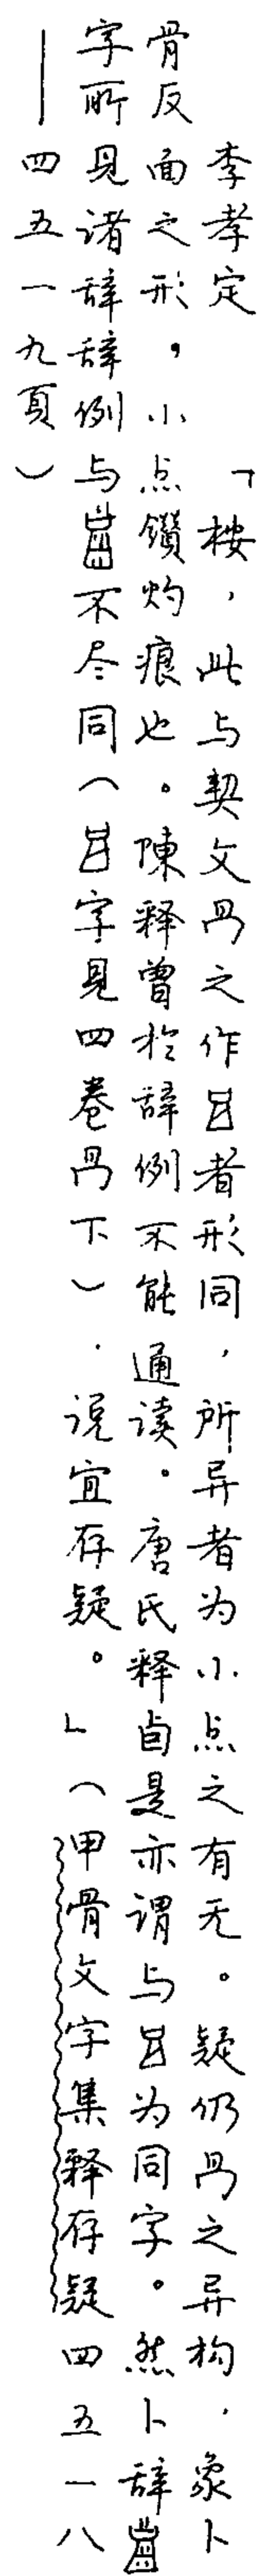 李孝定 「桉，此与契文冎之作𠙵者形同，所异者为小点之有无。疑仍冎之异构，象卜
骨反面之形，小点鑽灼痕也。陳释曾於辞例不能通读。唐氏释卣是亦谓与为同字。然卜辞
字所見诸辞辞例与不尽同（字見四卷冎下）．说宜存疑。」（甲骨文字集释存疑四五一八
——四五一九頁）